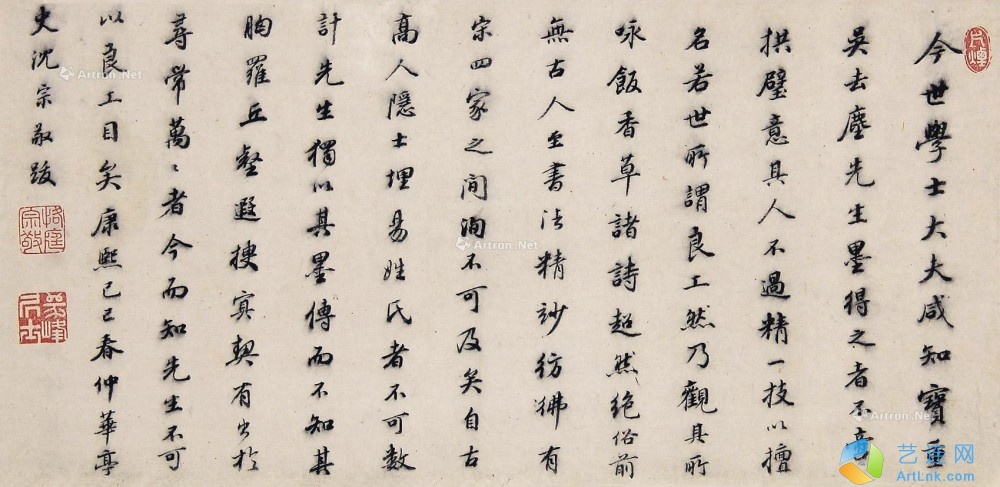 今世學士大夫咸知寶重
吳去塵先生墨得之者不啻
拱璧意其人不過精一技以擅
名若世所謂良工然乃觀其所
咏飯香草諸詩超然絶俗前
無古人至書法精妙彷彿有
宋四家之間洵不可及矣自古
高人隱士埋易姓氏者不可數
計先生獨以其墨傳而不知其
胸羅丘壑遐搜冥契有出於
尋常萬〻者今而知先生不可
以良工目矣康熙己巳春仲華亭
史沈宗敬跋
宗敬
Artron.Net
Artron.Net
Artron.Net
Artron.Net
Artron.Net
艺连网
ArtLnk.com